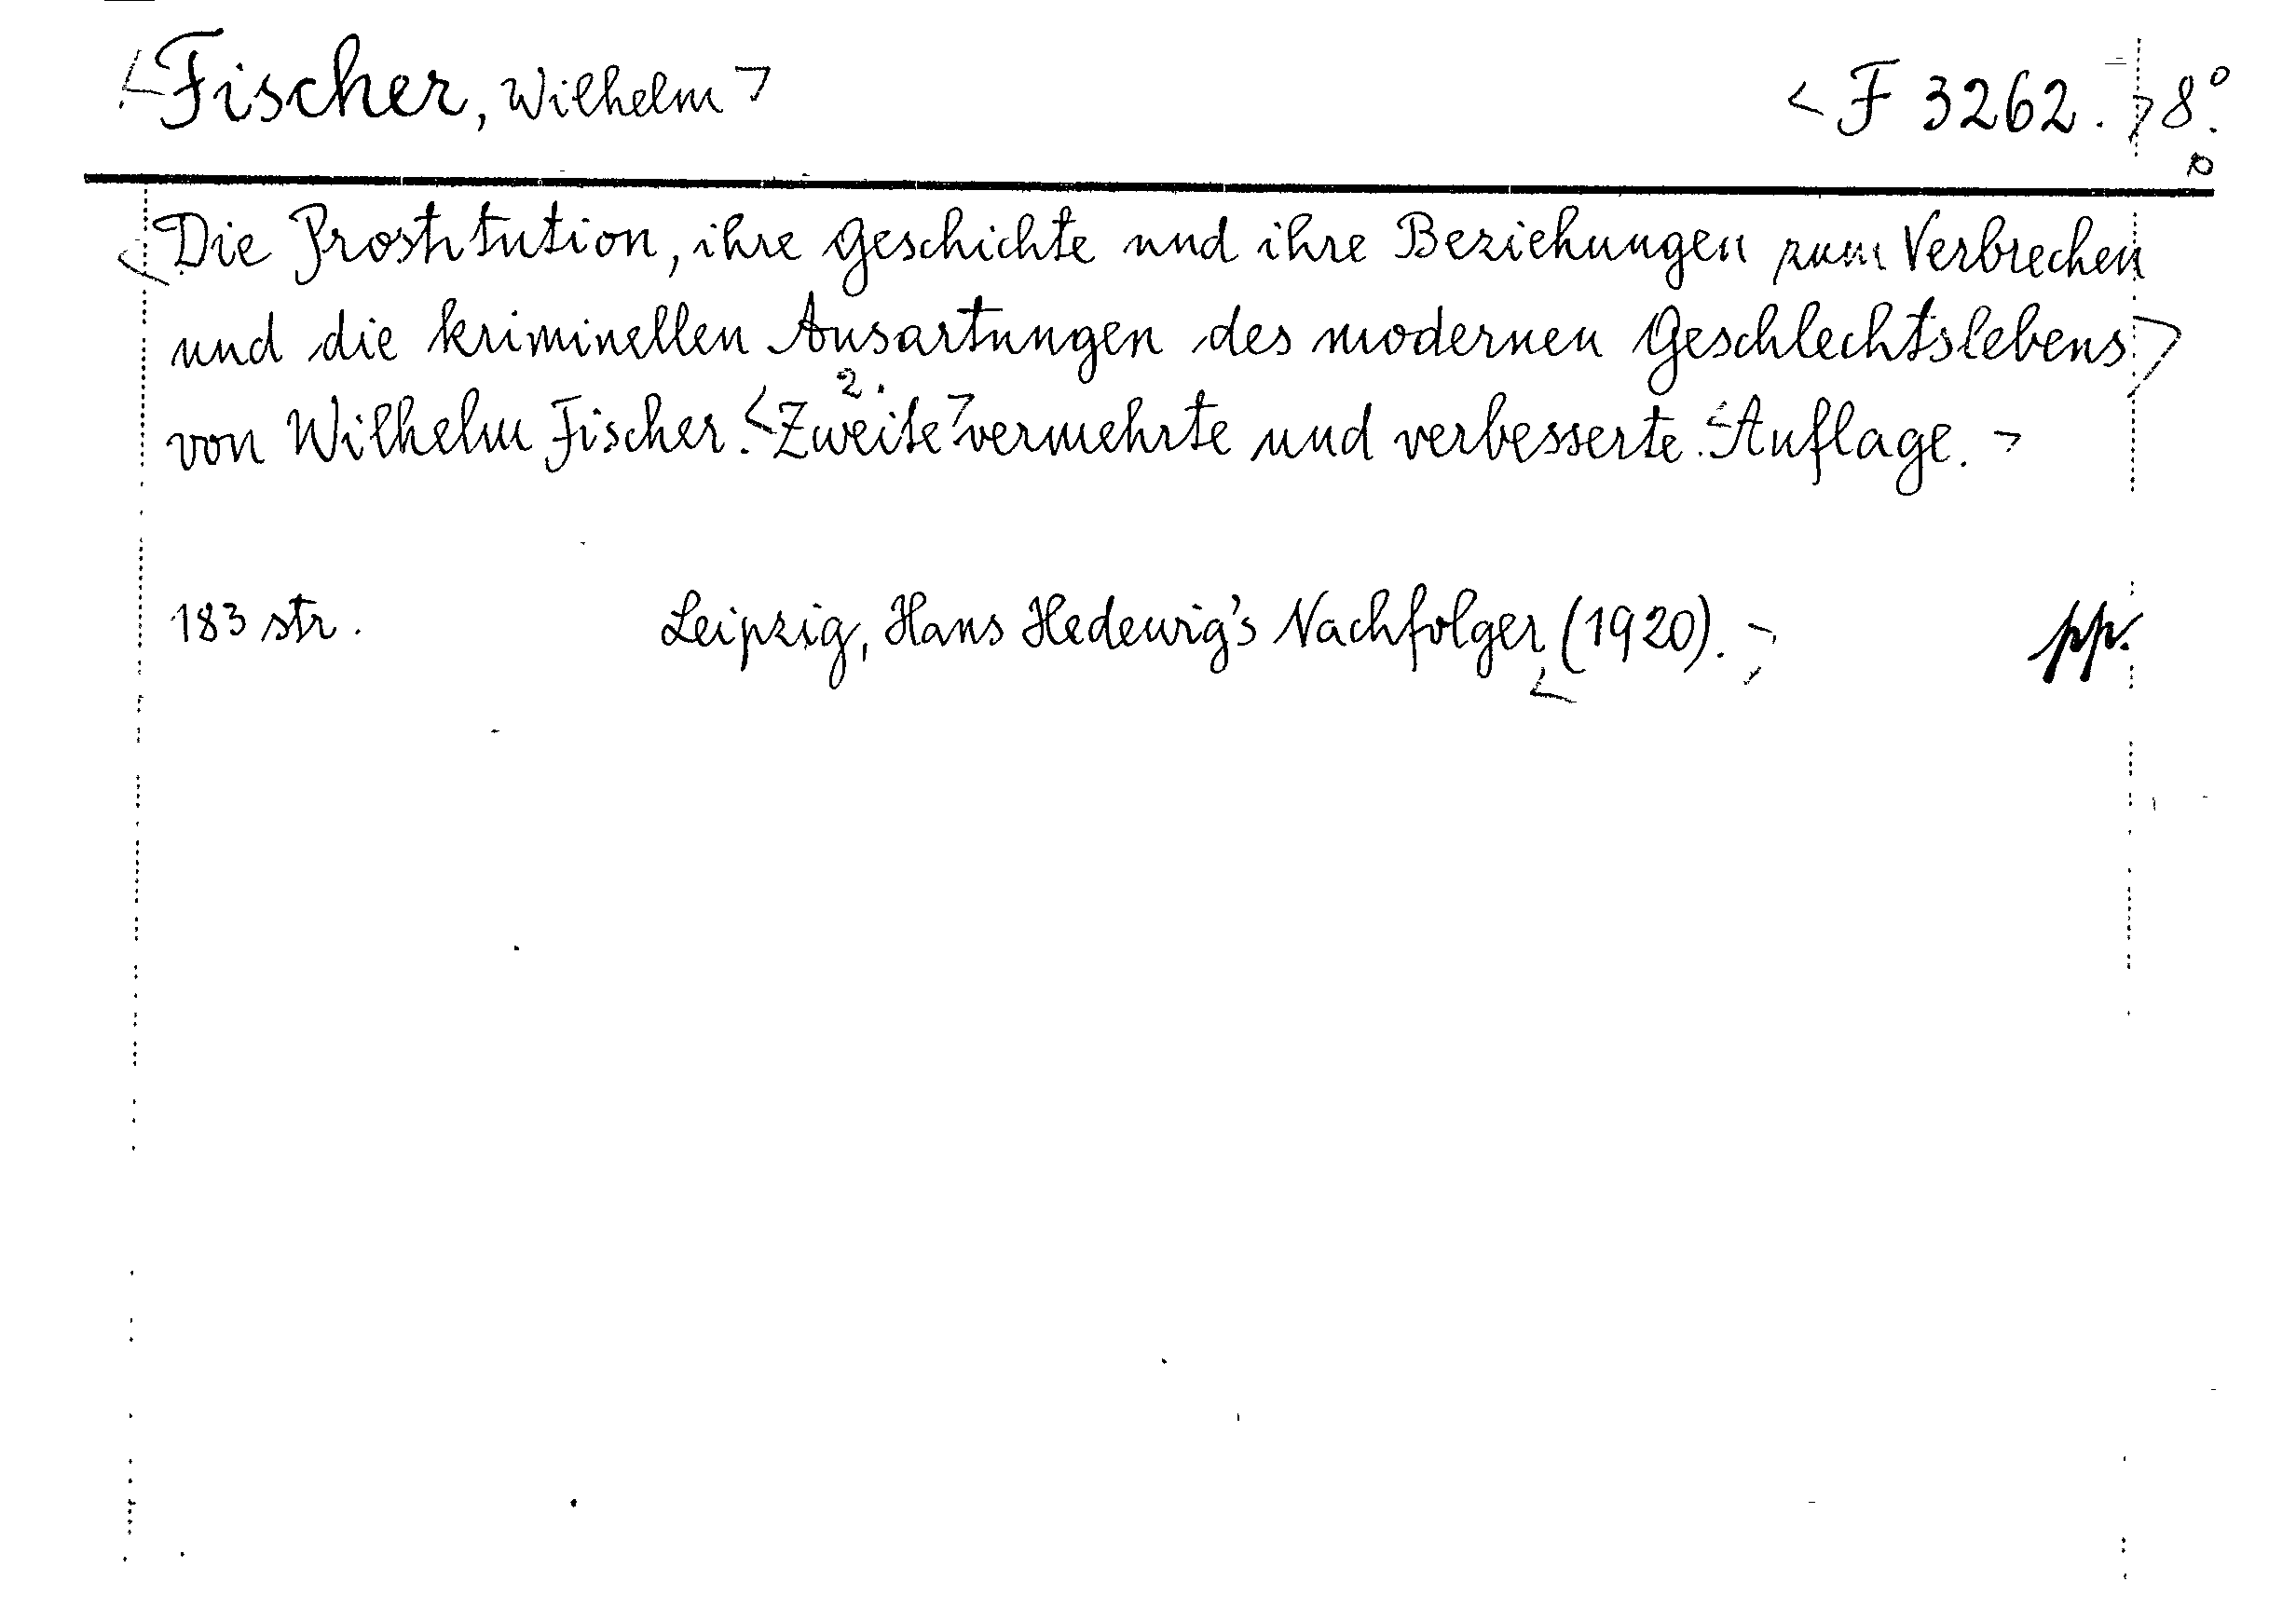 <Fischer, Wilhelm> <F 3262.> 8°.
<Die Prostitution, ihre Geschichte und ihre Beziehungen zum Verbrechen
und die kriminellen Ausartungen des modernen Geschlechtslebens>
2.
von Wilhelm Fischer. <Zweite> vermehrte und verbesserte. <Auflage.>
183 str. Leipzig, Hans Hedewig's Nachfolger <(1920).> pp.